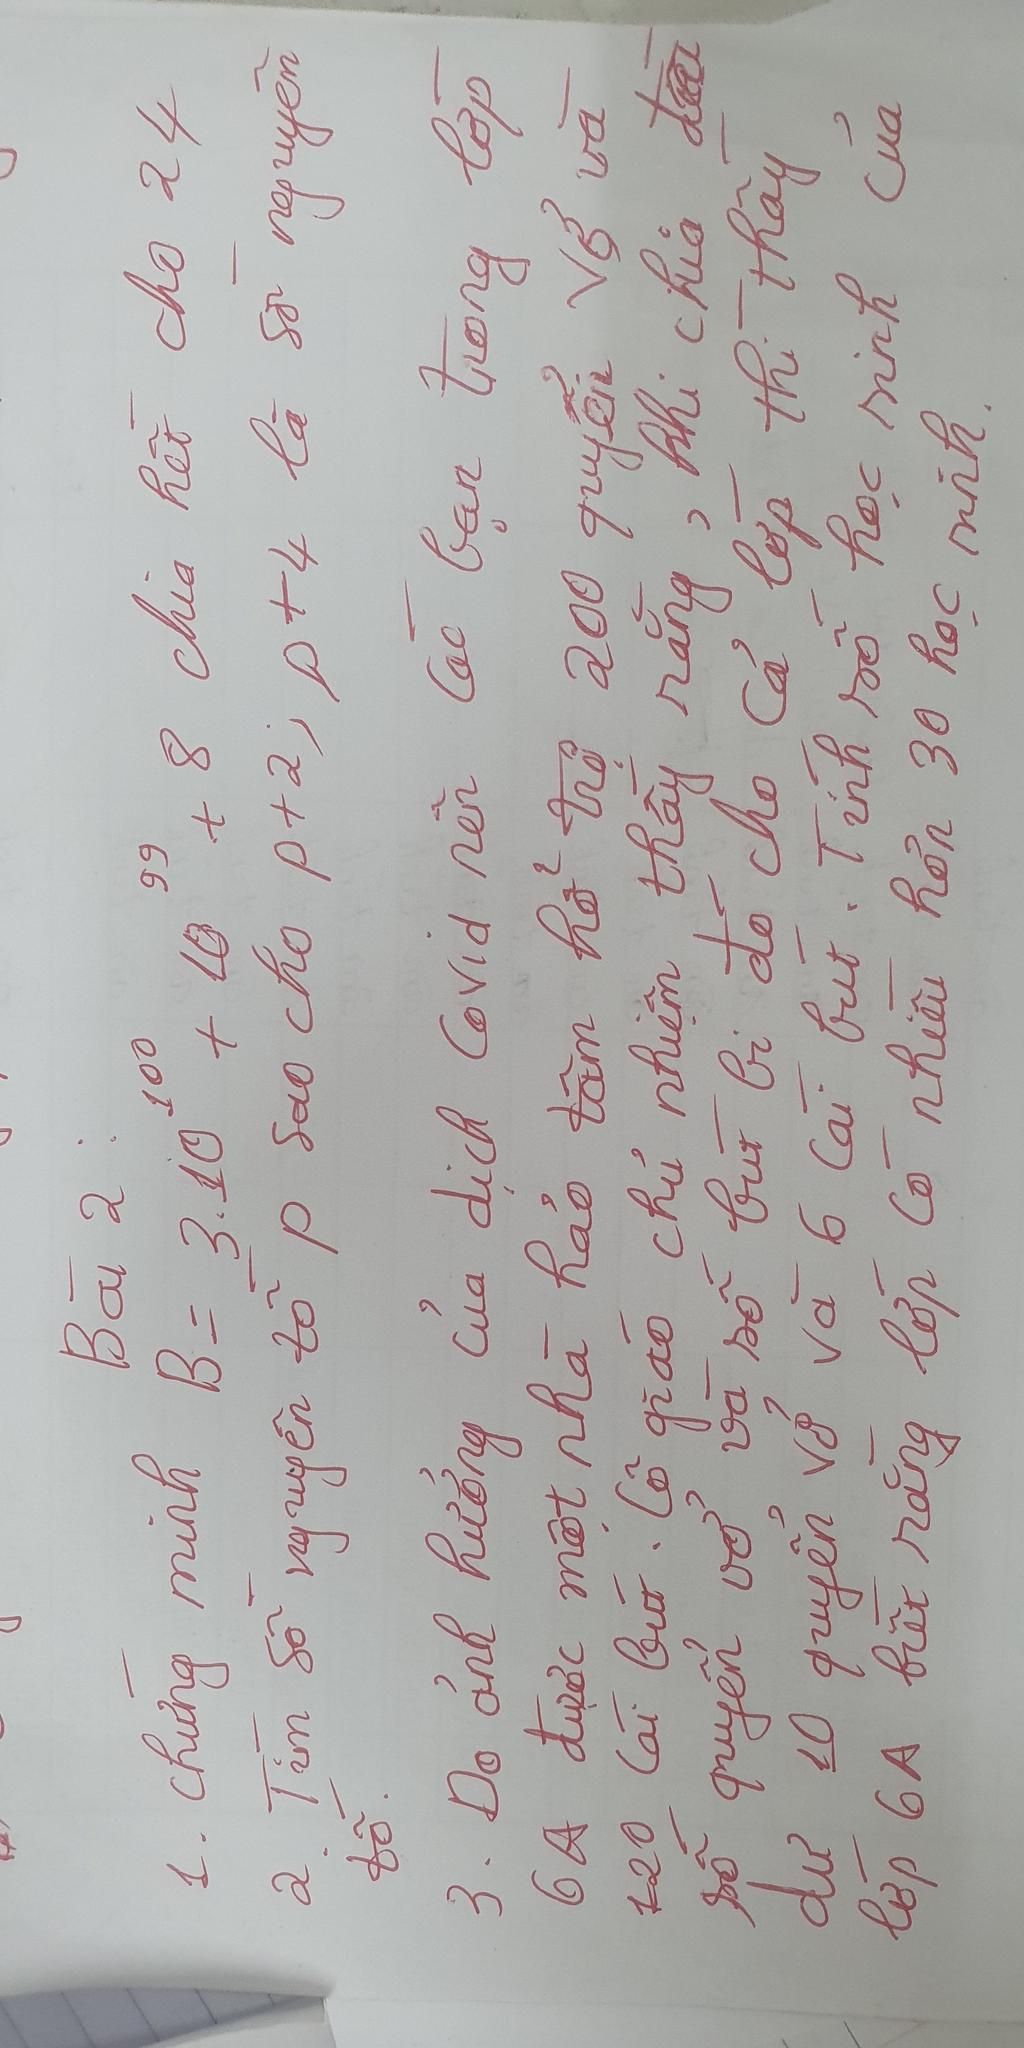 Bài 2:
1. Chứng minh B = 3.10¹⁰⁰ + 10⁹⁹ + 8 chia hết cho 24
2. Tìm số nguyên tố p sao cho p+2; p+4 là số nguyên
tố.
3. Do ảnh hưởng của dịch Covid nên các bạn trong lớp
6A được một nhà hảo tâm hỗ trợ 200 quyển vở và
120 cái bút. Cô giáo chủ nhiệm thấy rằng, khi chia đều
số quyển vở và số bút bi đó cho cả lớp thì thấy
dư 10 quyển vở và 6 cái bút. Tính số học sinh của
lớp 6A biết rằng lớp có nhiều hơn 30 học sinh.